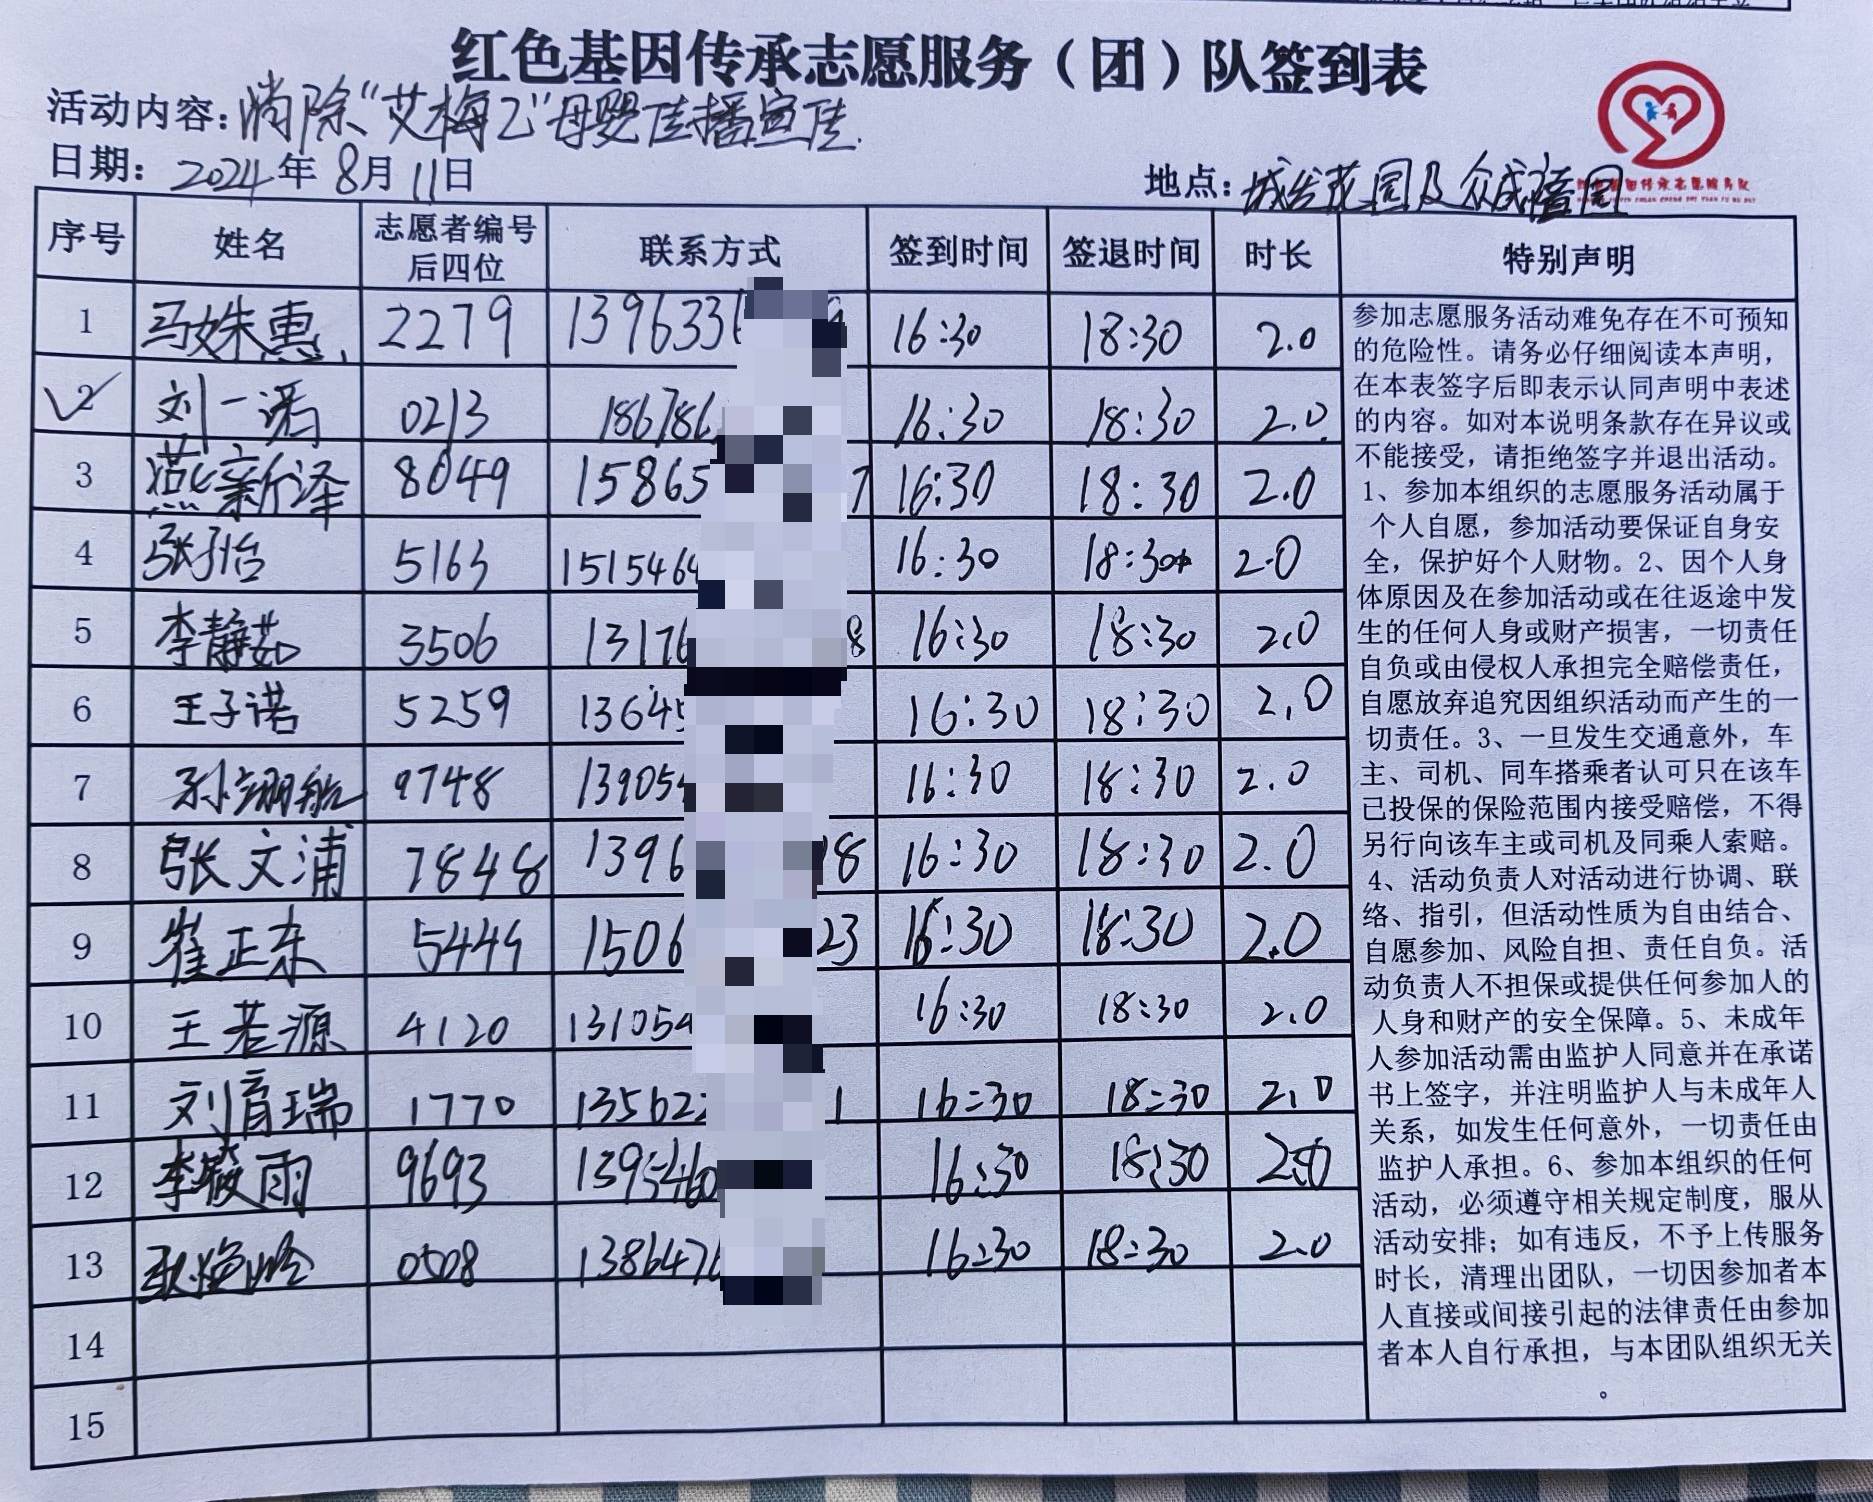 红色基因传承志愿服务（团）队签到表
活动内容：消除“艾梅乙”母婴传播宣传.
日期：2024年8月11日
地点：城发花园及众成 园
序号 姓名 志愿者编号后四位 联系方式 签到时间 签退时间 时长 特别声明
1 马姝惠 2279 139633 16:30 18:30 2.0
2 刘一诺 0213 18678 16:30 18:30 2.0
3 燕新泽 8049 15865 7 16:30 18:30 2.0
4 张子怡 5163 151546 16:30 18:30 2.0
5 李静茹 3506 13176 8 16:30 18:30 2.0
6 王子诺 5259 13645 16:30 18:30 2.0
7 孙翊航 9748 13905 16:30 18:30 2.0
8 张文浦 7848 1396 8 16:30 18:30 2.0
9 崔正东 5449 1506 23 16:30 18:30 2.0
10 王若源 4120 131054 16:30 18:30 2.0
11 刘育瑞 1770 135622 1 16:30 18:30 2.0
12 李筱雨 9693 1395460 16:30 18:30 2.0
13 0508 138647 16:30 18:30 2.0
14
15
参加志愿服务活动难免存在不可预知
的危险性。请务必仔细阅读本声明，
在本表签字后即表示认同声明中表述
的内容。如对本说明条款存在异议或
不能接受，请拒绝签字并退出活动。
1、参加本组织的志愿服务活动属于
个人自愿，参加活动要保证自身安
全，保护好个人财物。2、因个人身
体原因及在参加活动或在往返途中发
生的任何人身或财产损害，一切责任
自负或由侵权人承担完全赔偿责任，
自愿放弃追究因组织活动而产生的一
切责任。3、一旦发生交通意外，车
主、司机、同车搭乘者认可只在该车
已投保的保险范围内接受赔偿，不得
另行向该车主或司机及同乘人索赔。
4、活动负责人对活动进行协调、联
络、指引，但活动性质为自由结合、
自愿参加、风险自担、责任自负。活
动负责人不担保或提供任何参加人的
人身和财产的安全保障。5、未成年
人参加活动需由监护人同意并在承诺
书上签字，并注明监护人与未成年人
关系，如发生任何意外，一切责任由
监护人承担。6、参加本组织的任何
活动，必须遵守相关规定制度，服从
活动安排；如有违反，不予上传服务
时长，清理出团队，一切因参加者本
人直接或间接引起的法律责任由参加
者本人自行承担，与本团队组织无关
。